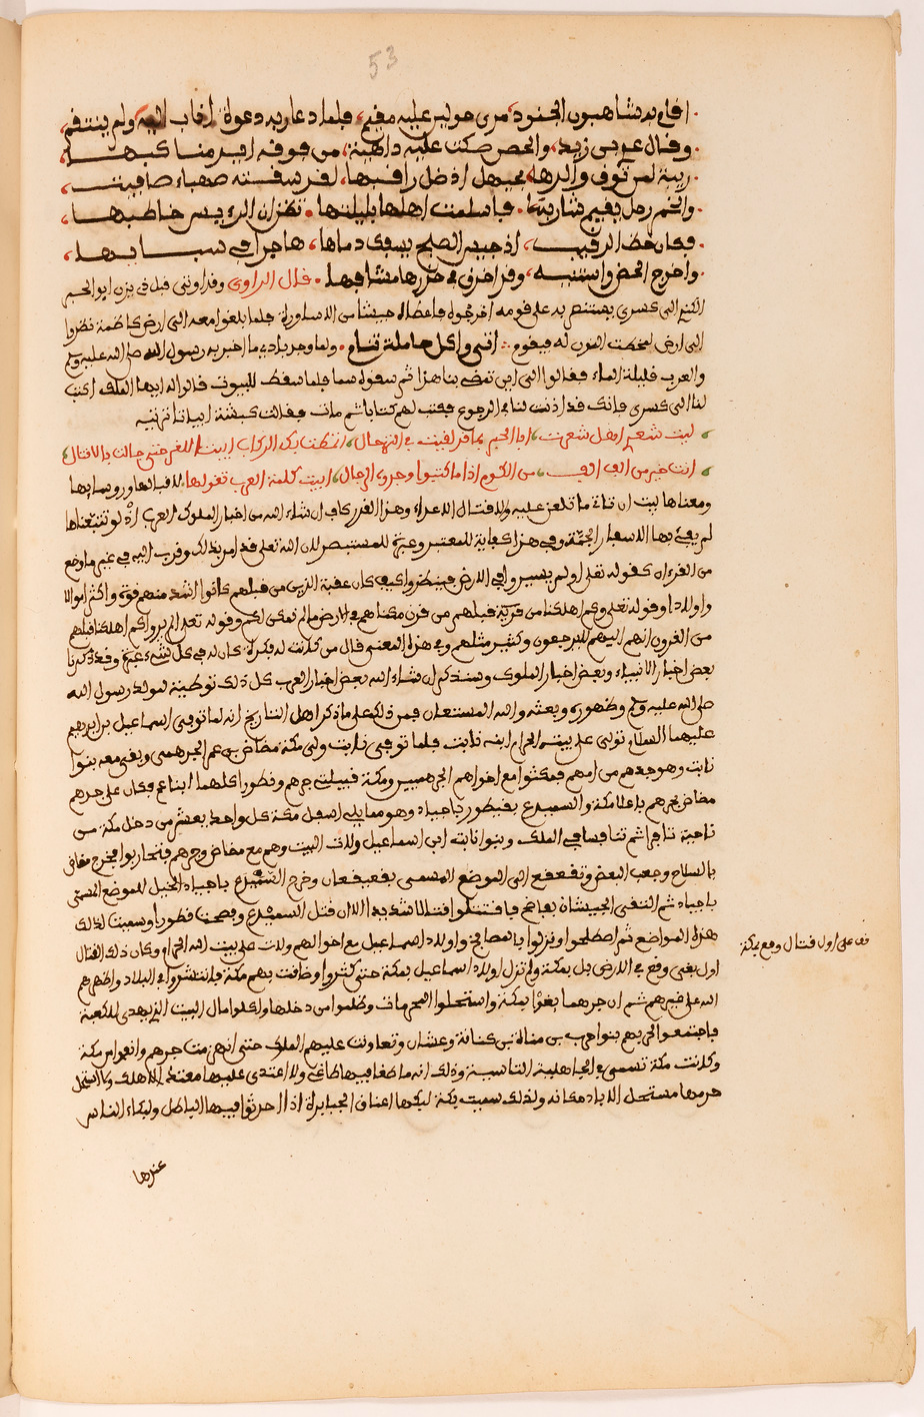 53
اقام به شاهبور الجنود من حولين عليه مقيم، فلما دعا ربه دعوة اناب اليه ولم ينتقم
وقال عدي بن زيد، والحصن صبت عليه داهية، من فوقه ايد مناكبها
ربية لم توق والدها، بحبها اذ ضل راقبها، لقد سقته صهباء صافية
والخم رجل يقيم شاربها. فاسلمت اهلها بليلتها. تظن ان الرءيس خاطبها
فكان حظ الرقيب، اذ جيس الصبح يسقى دماها، هاجرا في سبابها
واخرج الحضر واستبيه، وقد احرق في خدرها مشاجبها. قال الراوي وقد اوتى قبل في يزن ابو الحبر
الكنع الى كسرى يستنصر به على قومه اخرجوه فاعطاه جيشا من الاساورة فلما بلغوا معه الى ارض كاظمة نظروا
الى ارض
والعرب قليلة الماء فقالوا الى اين تمضي بنا هذا ثم سقوه سما فلما سقط للبيوت قالوا له ايها الملك اكتب
لنا الى كسرى فانك قد اذنت لنا في الرجوع فكتب لهم كتابا ثم مات فقالت كبشة ابياتا ترثيه
ليت شعري اهل شعرت، ابا الجبر بما قد لقيت في الترحال، انتطت بك الركاب ابيت اللعن حتى حللت بالاقتال
انت خير من الف الف، من القوم اذا ما كبتوا وجوه الرجال، ابيت كلمة العرب تقولها لاقيالها وروسايها
ومعناها ابيت ان تاتي ما تلعن عليه والاقتال الاعداء وهذا القدر كاف ان شاء الله من اخبار الملوك العرب اذ لو تتبعناها
لم يف بها الاسفار الجمة وفي هذا كفاية للمعتبر وعبرة للمستبصر لان الله تعلى قد امر بذلك وقرب اليه في غير ما وضع
من القرءان كقوله تعلى اولم يسيروا في الارض فينظروا كيف كان عاقبة الذين من قبلهم كانوا اشد منهم قوة واكثر اموالا
واولادا وقوله تعلى وكم اهلكنا من قرية قبلهم من قرن مكناهم في الارض ما لم نمكن لكم وقوله تعلى الم يروا كم اهلكنا قبلهم
من القرون انهم اليهم لا يرجعون وكثير مثلهم وفي هذا المعنى قال من كانت له فكرة كان له في كل شيء عبرة وقد ذكرنا
بعض اخبار الانبياء وبعض اخبار الملوك وسنذكر ان شاء الله بعض اخبار العرب كل ذلك توطية لمولد رسول الله
صلى الله عليه وسلم وظهوره وبعثه والله المستعان فمن ذلك على ما ذكر اهل التاريخ انه لما توفي اسماعيل بن ابراهيم
عليهما السلام تولى على بيت الحرام ابنه نابت فلما توفي نابت ولي مكة مضاض بن عمر الجرهمي وبقي معه بنوا
نابت وهو جدهم من امهم فمكثوا مع اخوالهم الجرهميين ومكة قبيلتي جرهم وقطورا كلهما ابنا عم فكان على جرهم
مضاض بجرهم باعلا مكة والسميدع بقيطور باجياد وهو مما يلي اسفل مكة كل واحد يعشر من دخل مكة من
ناحية ناقراثم تنافسا في الملك وبنوا نابت ابن اسماعيل ولات البيت وهم مع مضاض وجرهم فتحاربوا فخرج مضاض
بالسلاح وجعب البعض وتقعقع الى الموضع المسمى بقعيقعان وخرج السميدع باجياد الخيل للموضع المسمى
باجياد ثم التقى الجيشان بفاضح فاقتتلوا قتالا شديدا الا ان قتل السميدع وفضحت قطورا وسميت لذلك
هذه المواضع ثم اصطلحوا ونزلوا بالمصالح واولاد اسماعيل مع اخوالهم ولات على بيت الله الحرام وكان ذلك القتال
اول بغي وقع في الارض بل بمكة ولم تزل اولاد اسماعيل بمكة حتى كثروا وضاقت بهم مكة فانتشروا في البلاد واظهرهم
الله على غيرهم ثم ان جرهما بغوا بمكة واستحلوا المحرمات وظلموا من دخلها واكلوا مال البيت الذي يهدى للكعبة
فاجتمعوا لحربهم بنوا حرب بن مناة بن كنانة وغشان وتعاونت عليهم الملوك حتى انهزمت جرهم وانفوا من مكة
وكانت مكة تسمى في الجاهلية الناسة وذلك انه ما طغا فيها طاغ ولا اعتدى عليها معتد الا هلك ولا استحل
حرمها مستحل الا باد مكانه ولذلك سميت بكة لبكها اعناق الجبابرة اذا احدثوا فيها الباطل ولبكاء الناس
عندها
قف على اول قتال وقع بمكة